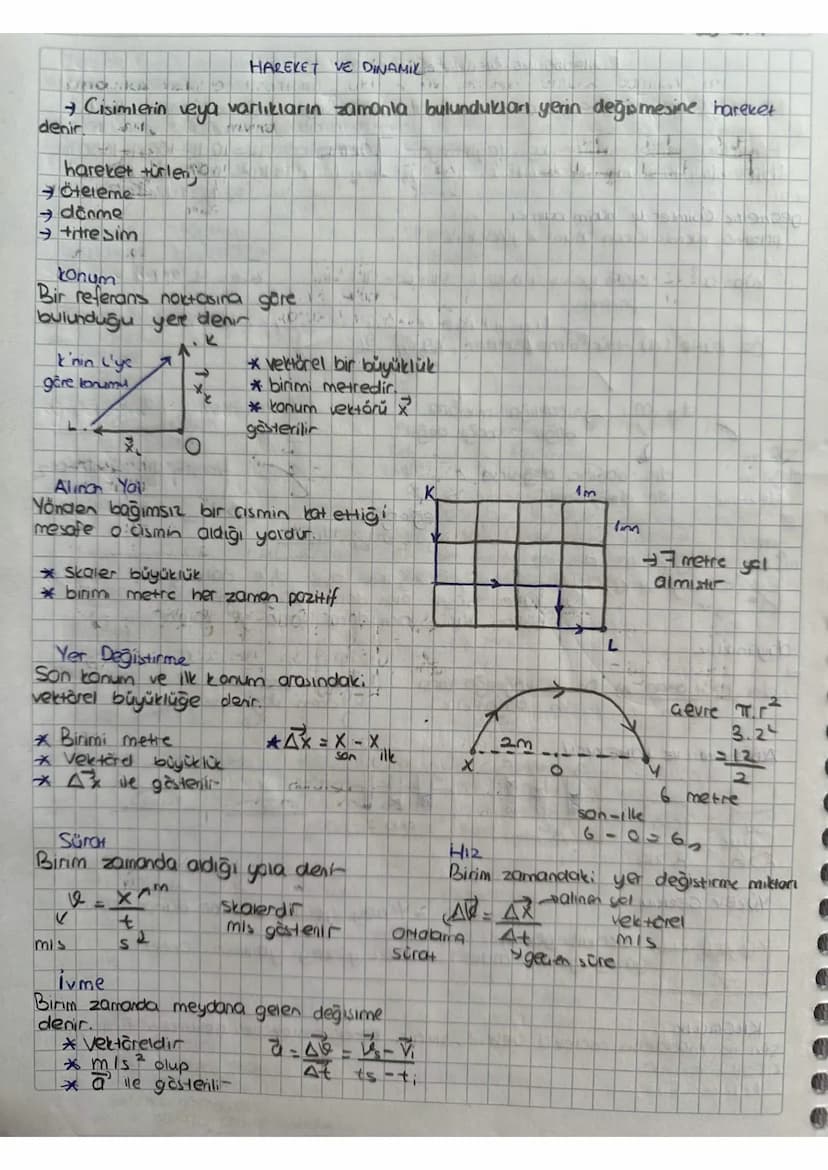 HAREKET VE DİNAMİK
→ Cisimlerin veya varlıkların zamanla bulundukları yerin değişmesine hareket
denir.
hareket türleri;
→ öteleme
→ dönme
→ titreşim
Konum
Bir referans noktasına göre
bulunduğu yer denir
K'nın L'ye
göre konumu
K
x⃗k
L
x⃗L
O
* vektörel bir büyüklük
* birimi metredir.
* konum vektörü x⃗
gösterilir
Alınan Yol
Yönden bağımsız bir cismin kat ettiği
mesafe o cismin aldığı yoldur.
* skaler büyüklük
* birim metre her zaman pozitif
K
1m
1m
→ 7 metre yol
almıştır
L
Yer Değiştirme
Son konum ve ilk konum arasındaki
vektörel büyüklüğe denir.
* Birimi metre
* Vektörel büyüklük
* Δx⃗ ile gösterilir
* Δx⃗ = x son - x ilk
2m
X
O
Y
Çevre π.r²
3.2²
= 12/2
6 metre
son-ilk
6 - 0 = 6
Sürat
Birim zamanda aldığı yola denir
v = x → m
t
s
m/s
skalerdir
m/s gösterilir
Hız
Birim zamandaki yer değiştirme miktarı
Δv⃗ = Δx⃗ → alınan yol
Δt
→ geçen süre
ortalama
sürat
vektörel
m/s
İvme
Birim zamanda meydana gelen değişime
denir.
* vektöreldir
* m/s² olup
* a⃗ ile gösterilir
a⃗ = Δv⃗/Δt = v⃗s - v⃗i / ts - ti